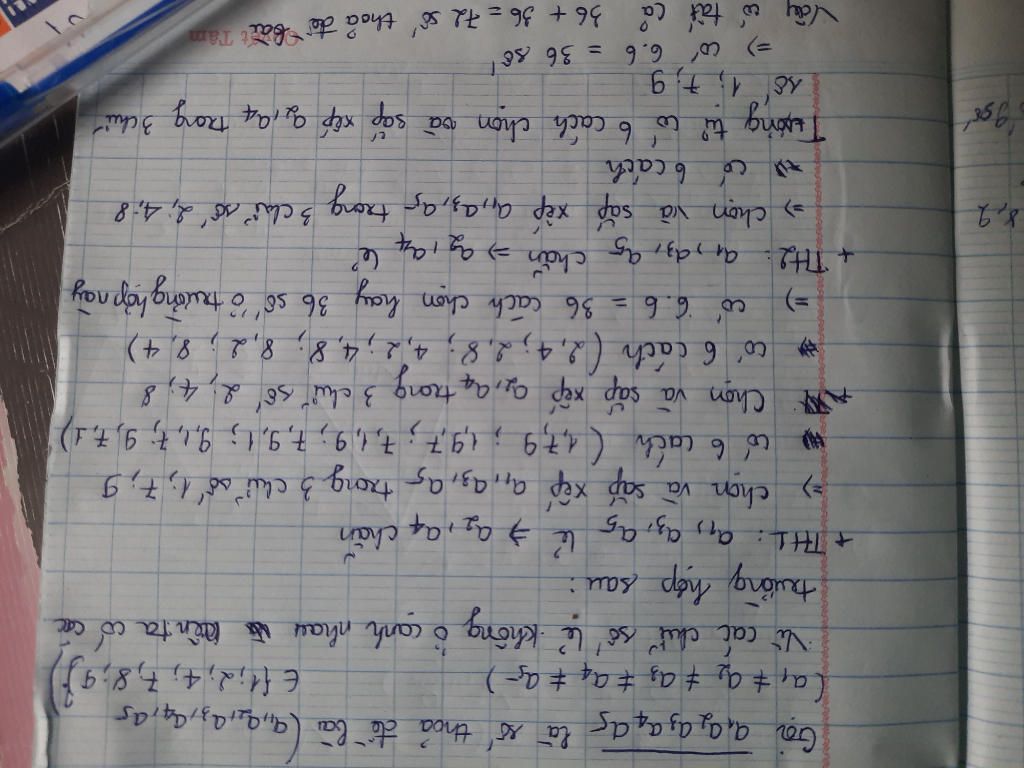 Gọi a₁a₂a₃a₄a₅ là số thoả đề là (a₁,a₂,a₃,a₄,a₅
(a₁ ≠ a₂ ≠ a₃ ≠ a₄ ≠ a₅) ∈ {1;2;4;7;8;9})
Vì các chữ số lẻ không ở cạnh nhau nên ta có các
trường hợp sau:
+ TH1: a₁, a₃, a₅ lẻ → a₂, a₄ chẵn
=> chọn và sắp xếp a₁, a₃, a₅ trong 3 chữ số 1; 7; 9
có 6 cách (1,7,9 ; 1,9,7 ; 7,1,9 ; 7,9,1 ; 9,1,7 ; 9,7,1)
Chọn và sắp xếp a₂, a₄ trong 3 chữ số 2; 4; 8
có 6 cách (2,4 ; 2,8 ; 4,2 ; 4,8 ; 8,2 ; 8,4)
=> có 6.6 = 36 cách chọn hay 36 số ở trường hợp này
+ TH2: a₁, a₃, a₅ chẵn => a₂, a₄ lẻ
=> chọn và sắp xếp a₁, a₃, a₅ trong 3 chữ số 2; 4; 8
có 6 cách
Tương tự có 6 cách chọn và sắp xếp a₂, a₄ trong 3 chữ
số 1; 7; 9
=> có 6.6 = 36 số
Vậy có tất cả 36 + 36 = 72 số thoả đề bài
8,2
9 số